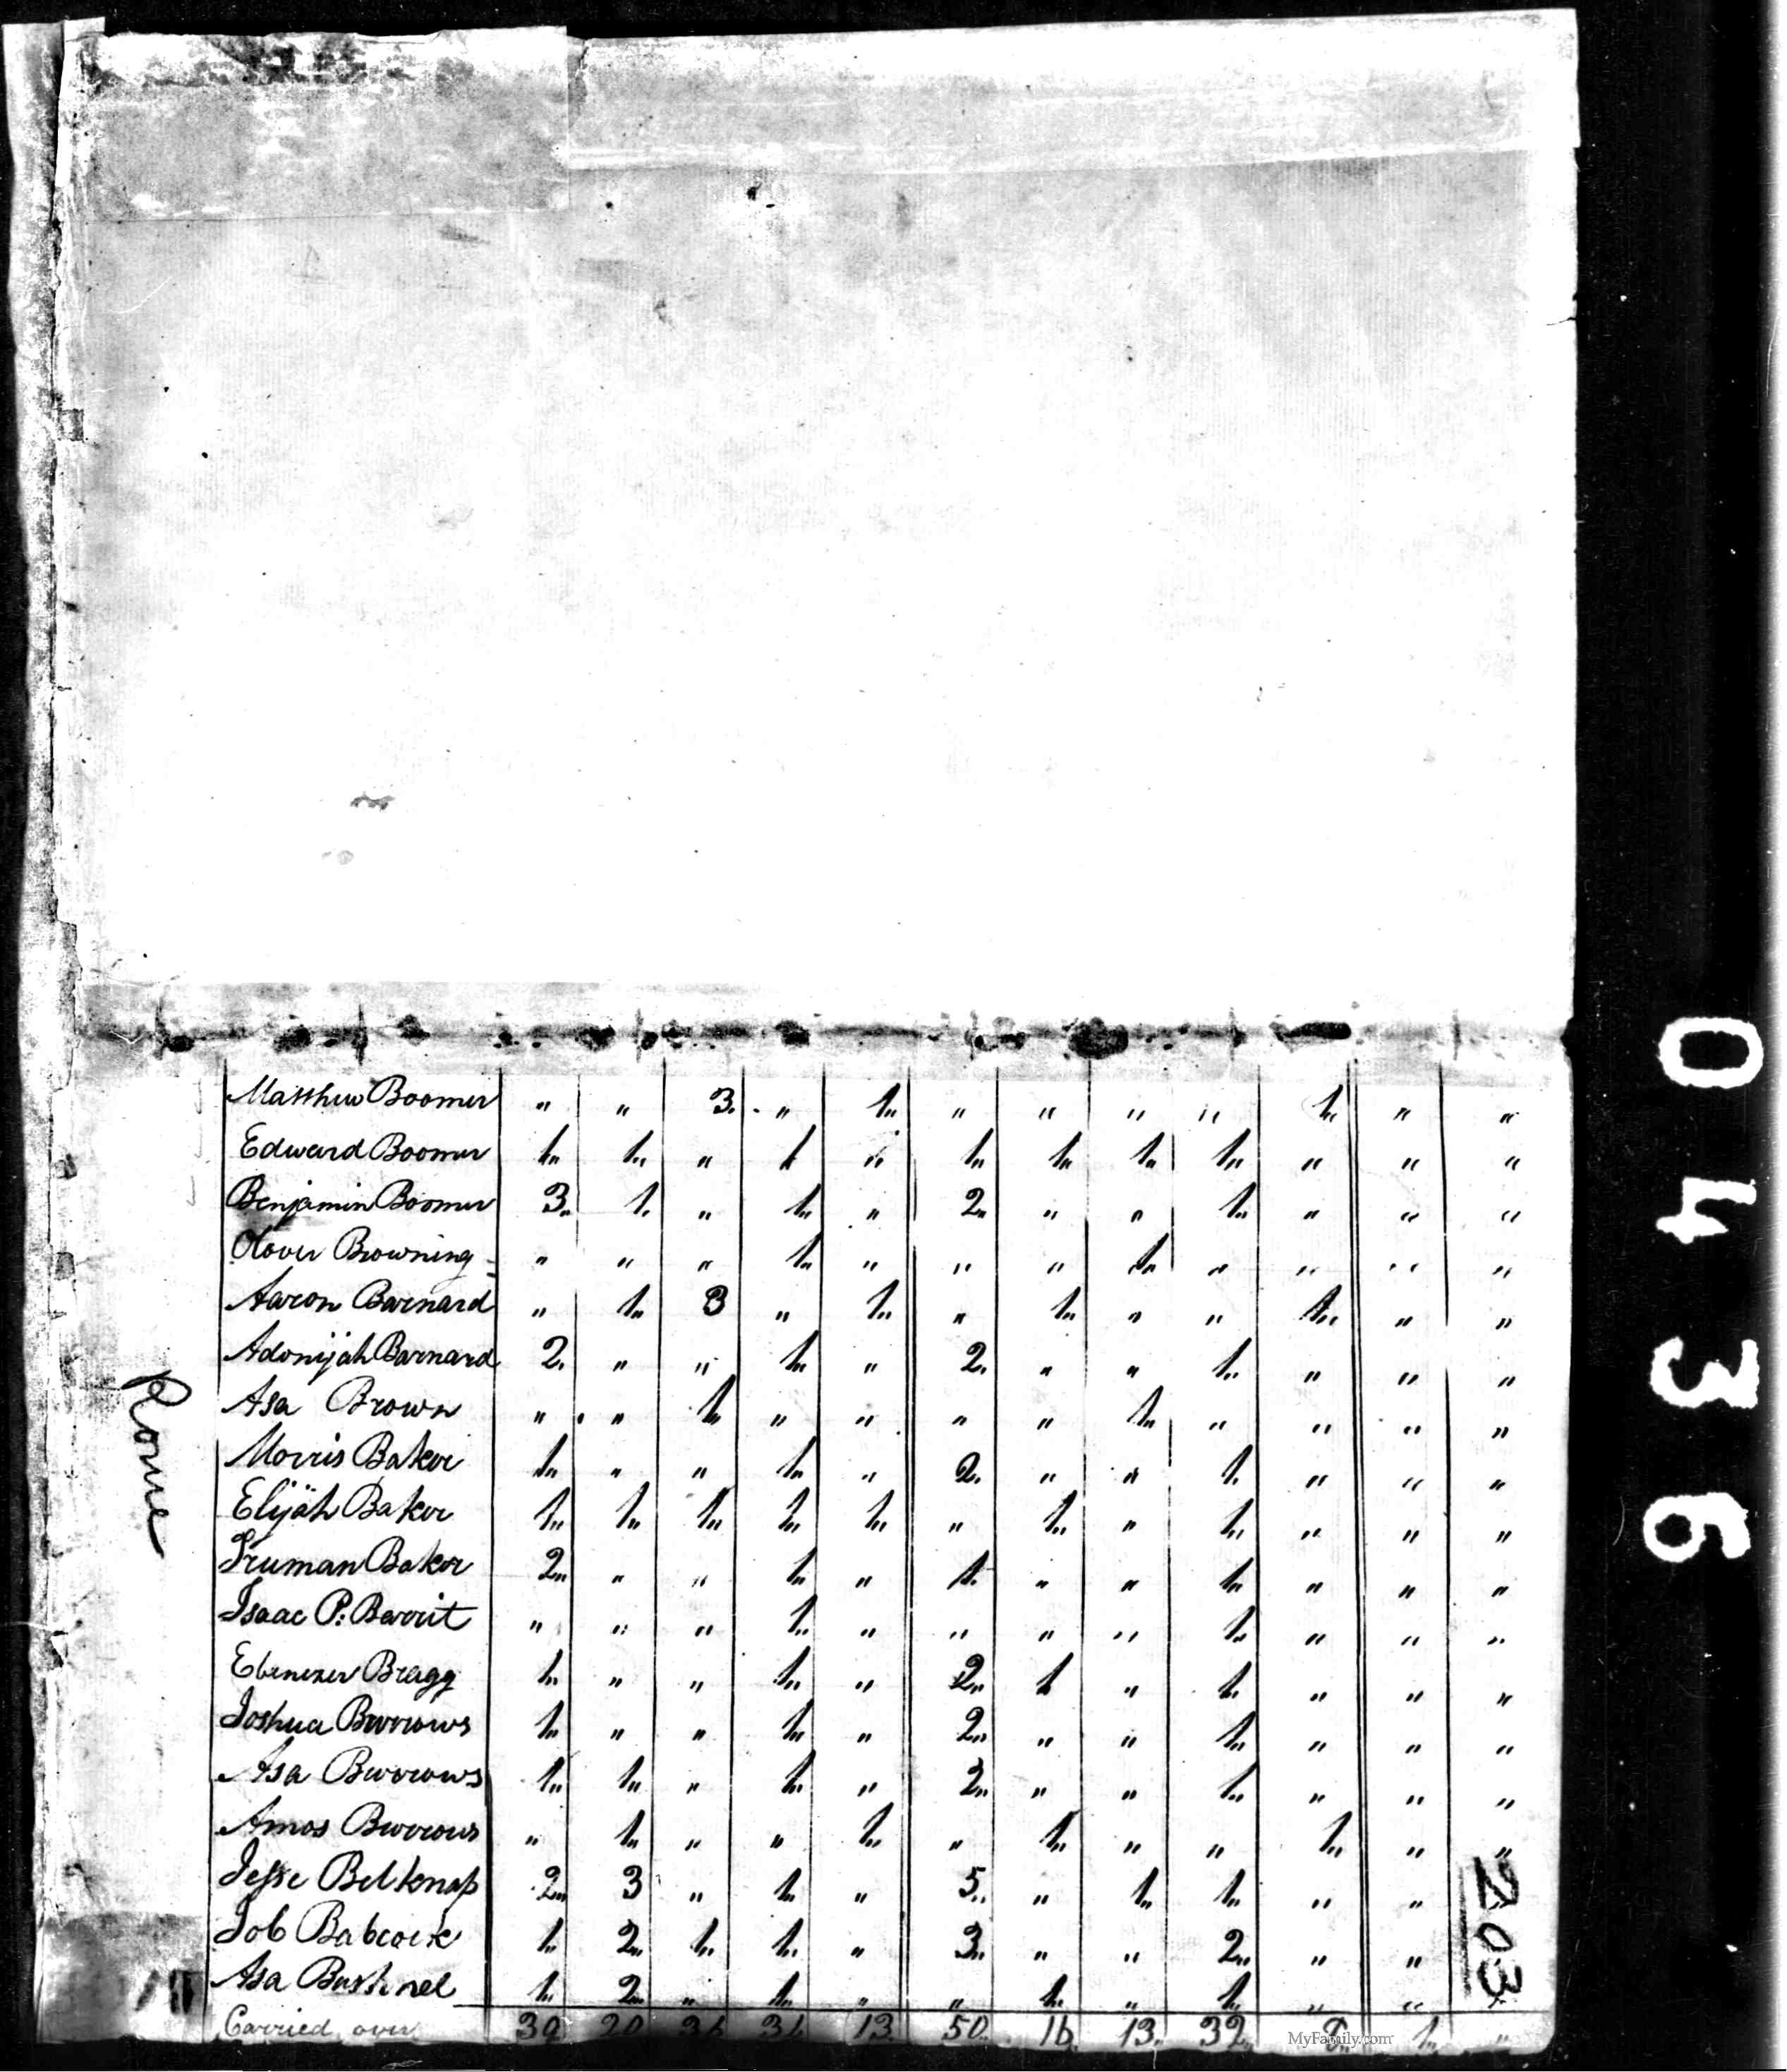 Matthew Boomer " " 3. " 1" " " " " 1" " "
Edward Boomer 1" 1" " 1 " 1" 1" 1" 1" " " "
Benjamin Boomer 3" 1. " 1" " 2" " " 1" " " "
Olover Browning " " " 1" " " " 1" " " " "
Aaron Barnard " 1" 3 " 1" " 1" " " 1" " "
Adonijah Barnard 2. " " 1" " 2. " " 1" " " "
Asa Brown " " 1" " " " " 1" " " " "
Morris Baker 1" " " 1" " 2. " " 1. " " "
Elijah Baker 1" 1" 1" 1" 1" " 1" " 1" " " "
Truman Baker 2" " " 1" " 1. " " 1" " " "
Isaac P. Berrit " " " 1" " " " " 1" " " "
Ebenezer Bragg 1" " " 1" " 2" 1 " 1" " " "
Joshua Burrows 1" " " 1" " 2" " " 1" " " "
Asa Burrows 1" 1" " 1" " 2" " " 1" " " "
Amos Burrows " 1" " " 1" " 1" " " 1" " "
Jesse Belknap 2" 3 " 1" " 5" " 1" 1" " "
Job Babcock 1" 2" 1" 1" " 3" " " 2" " "
Asa Bushnel 1" 2" " 1" " " 1" " 1" " "
Carried over 20 13 50 16 13. 32 1"
Rome
203
0436
MyFamily.com